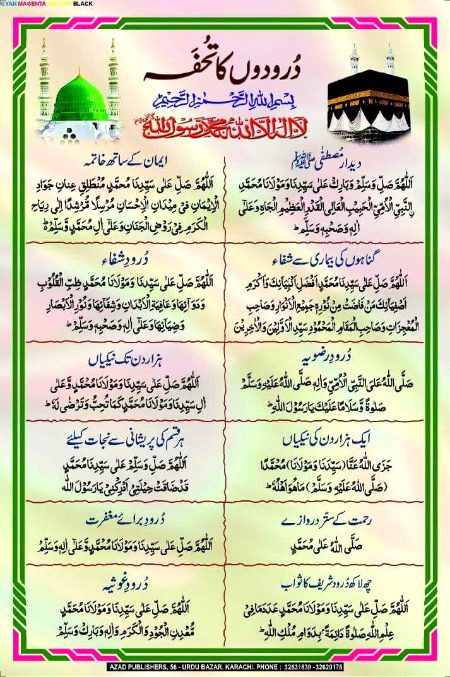 CYAN MAGENTA YELLOW BLACK
درودوں کا تحفہ
بِسْمِ اللهِ الرَّحْمٰنِ الرَّحِيْمِ
لَا اِلٰهَ اِلَّا اللهُ مُحَمَّدٌ رَّسُوْلُ اللهِ
دیدارِ مصطفٰی ﷺ
اَللّٰهُمَّ صَلِّ وَسَلِّمْ وَبَارِكْ عَلٰى سَيِّدِنَا مُحَمَّدِ
النَّبِيِّ الْاُمِّيِّ الْحَبِيْبِ الْعَالِي الْقَدْرِ الْعَظِيْمِ الْجَاهِ وَعَلٰى
اٰلِهٖ وَصَحْبِهٖ وَسَلِّمْ ط
ایمان کے ساتھ خاتمہ
اَللّٰهُمَّ صَلِّ عَلٰى سَيِّدِنَا مُحَمَّدٍ مُّنْطَلِقِ عِنَانِ جَوَادِ
الْاِيْمَانِ فِيْ مَيْدَانِ الْاِحْسَانِ مُرْسَلًا مُّرْشِدًا اِلٰى رِيَاحِ
الْكَرَمِ فِيْ رَوْضِ الْجَنَانِ وَعَلٰى اٰلِ مُحَمَّدٍ وَّسَلِّمْ ط
گناہوں کی بیماری سے شفاء
اَللّٰهُمَّ صَلِّ عَلٰى سَيِّدِنَا مُحَمَّدٍ اَفْضَلِ اَنْبِيَائِكَ وَاَكْرَمِ
اَصْفِيَائِكَ مَنْ فَاضَتْ مِنْ نُّوْرِهٖ جَمِيْعُ الْاَنْوَارِ وَصَاحِبِ
الْمُعْجِزَاتِ وَصَاحِبِ الْمَقَامِ الْمَحْمُوْدِ سَيِّدِ الْاَوَّلِيْنَ وَالْاٰخِرِيْنَ
درودِ شفاء
اَللّٰهُمَّ صَلِّ عَلٰى سَيِّدِنَا وَمَوْلَانَا مُحَمَّدٍ طِبِّ الْقُلُوْبِ
وَدَوَآئِهَا وَعَافِيَةِ الْاَبْدَانِ وَشِفَائِهَا وَنُوْرِ الْاَبْصَارِ
وَضِيَآئِهَا وَعَلٰى اٰلِهٖ وَصَحْبِهٖ وَسَلِّمْ ط
درودِ رضویہ
صَلَّى اللهُ عَلَى النَّبِيِّ الْاُمِّيِّ وَاٰلِهٖ صَلَّى اللهُ عَلَيْهِ وَسَلَّمَ
صَلٰوةً وَّسَلَامًا عَلَيْكَ يَا رَسُوْلَ اللهِ ط
ہزار دن تک نیکیاں
اَللّٰهُمَّ صَلِّ عَلٰى سَيِّدِنَا وَمَوْلَانَا مُحَمَّدٍ وَّعَلٰى
اٰلِ سَيِّدِنَا وَمَوْلَانَا مُحَمَّدٍ كَمَا تُحِبُّ وَتَرْضٰى لَهٗ ط
ایک ہزار دن کی نیکیاں
جَزَى اللهُ عَنَّا (سَيِّدَنَا وَمَوْلَانَا) مُحَمَّدًا
(صَلَّى اللهُ عَلَيْهِ وَسَلَّمَ) مَا هُوَ اَهْلُهٗ ط
ہر قسم کی پریشانی سے نجات کیلئے
اَللّٰهُمَّ صَلِّ وَسَلِّمْ عَلٰى سَيِّدِنَا مُحَمَّدٍ
قَدْ ضَاقَتْ حِيْلَتِيْ اَدْرِكْنِيْ يَا رَسُوْلَ اللهِ
رحمت کے ستر دروازے
صَلَّى اللهُ عَلٰى مُحَمَّدٍ
درود برائے مغفرت
اَللّٰهُمَّ صَلِّ عَلٰى سَيِّدِنَا وَمَوْلَانَا مُحَمَّدٍ وَّعَلٰى اٰلِهٖ وَسَلِّمْ
چھ لاکھ درود شریف کا ثواب
اَللّٰهُمَّ صَلِّ عَلٰى سَيِّدِنَا وَمَوْلَانَا مُحَمَّدٍ عَدَدَ مَا فِيْ
عِلْمِ اللهِ صَلٰوةً دَآئِمَةً بِدَوَامِ مُلْكِ اللهِ ط
درودِ غوثیہ
اَللّٰهُمَّ صَلِّ عَلٰى سَيِّدِنَا وَمَوْلَانَا مُحَمَّدٍ
مَّعْدِنِ الْجُوْدِ وَالْكَرَمِ وَاٰلِهٖ وَبَارِكْ وَسَلِّمْ
AZAD PUBLISHERS, 56 - URDU BAZAR, KARACHI. PHONE : 32631839 -32620178